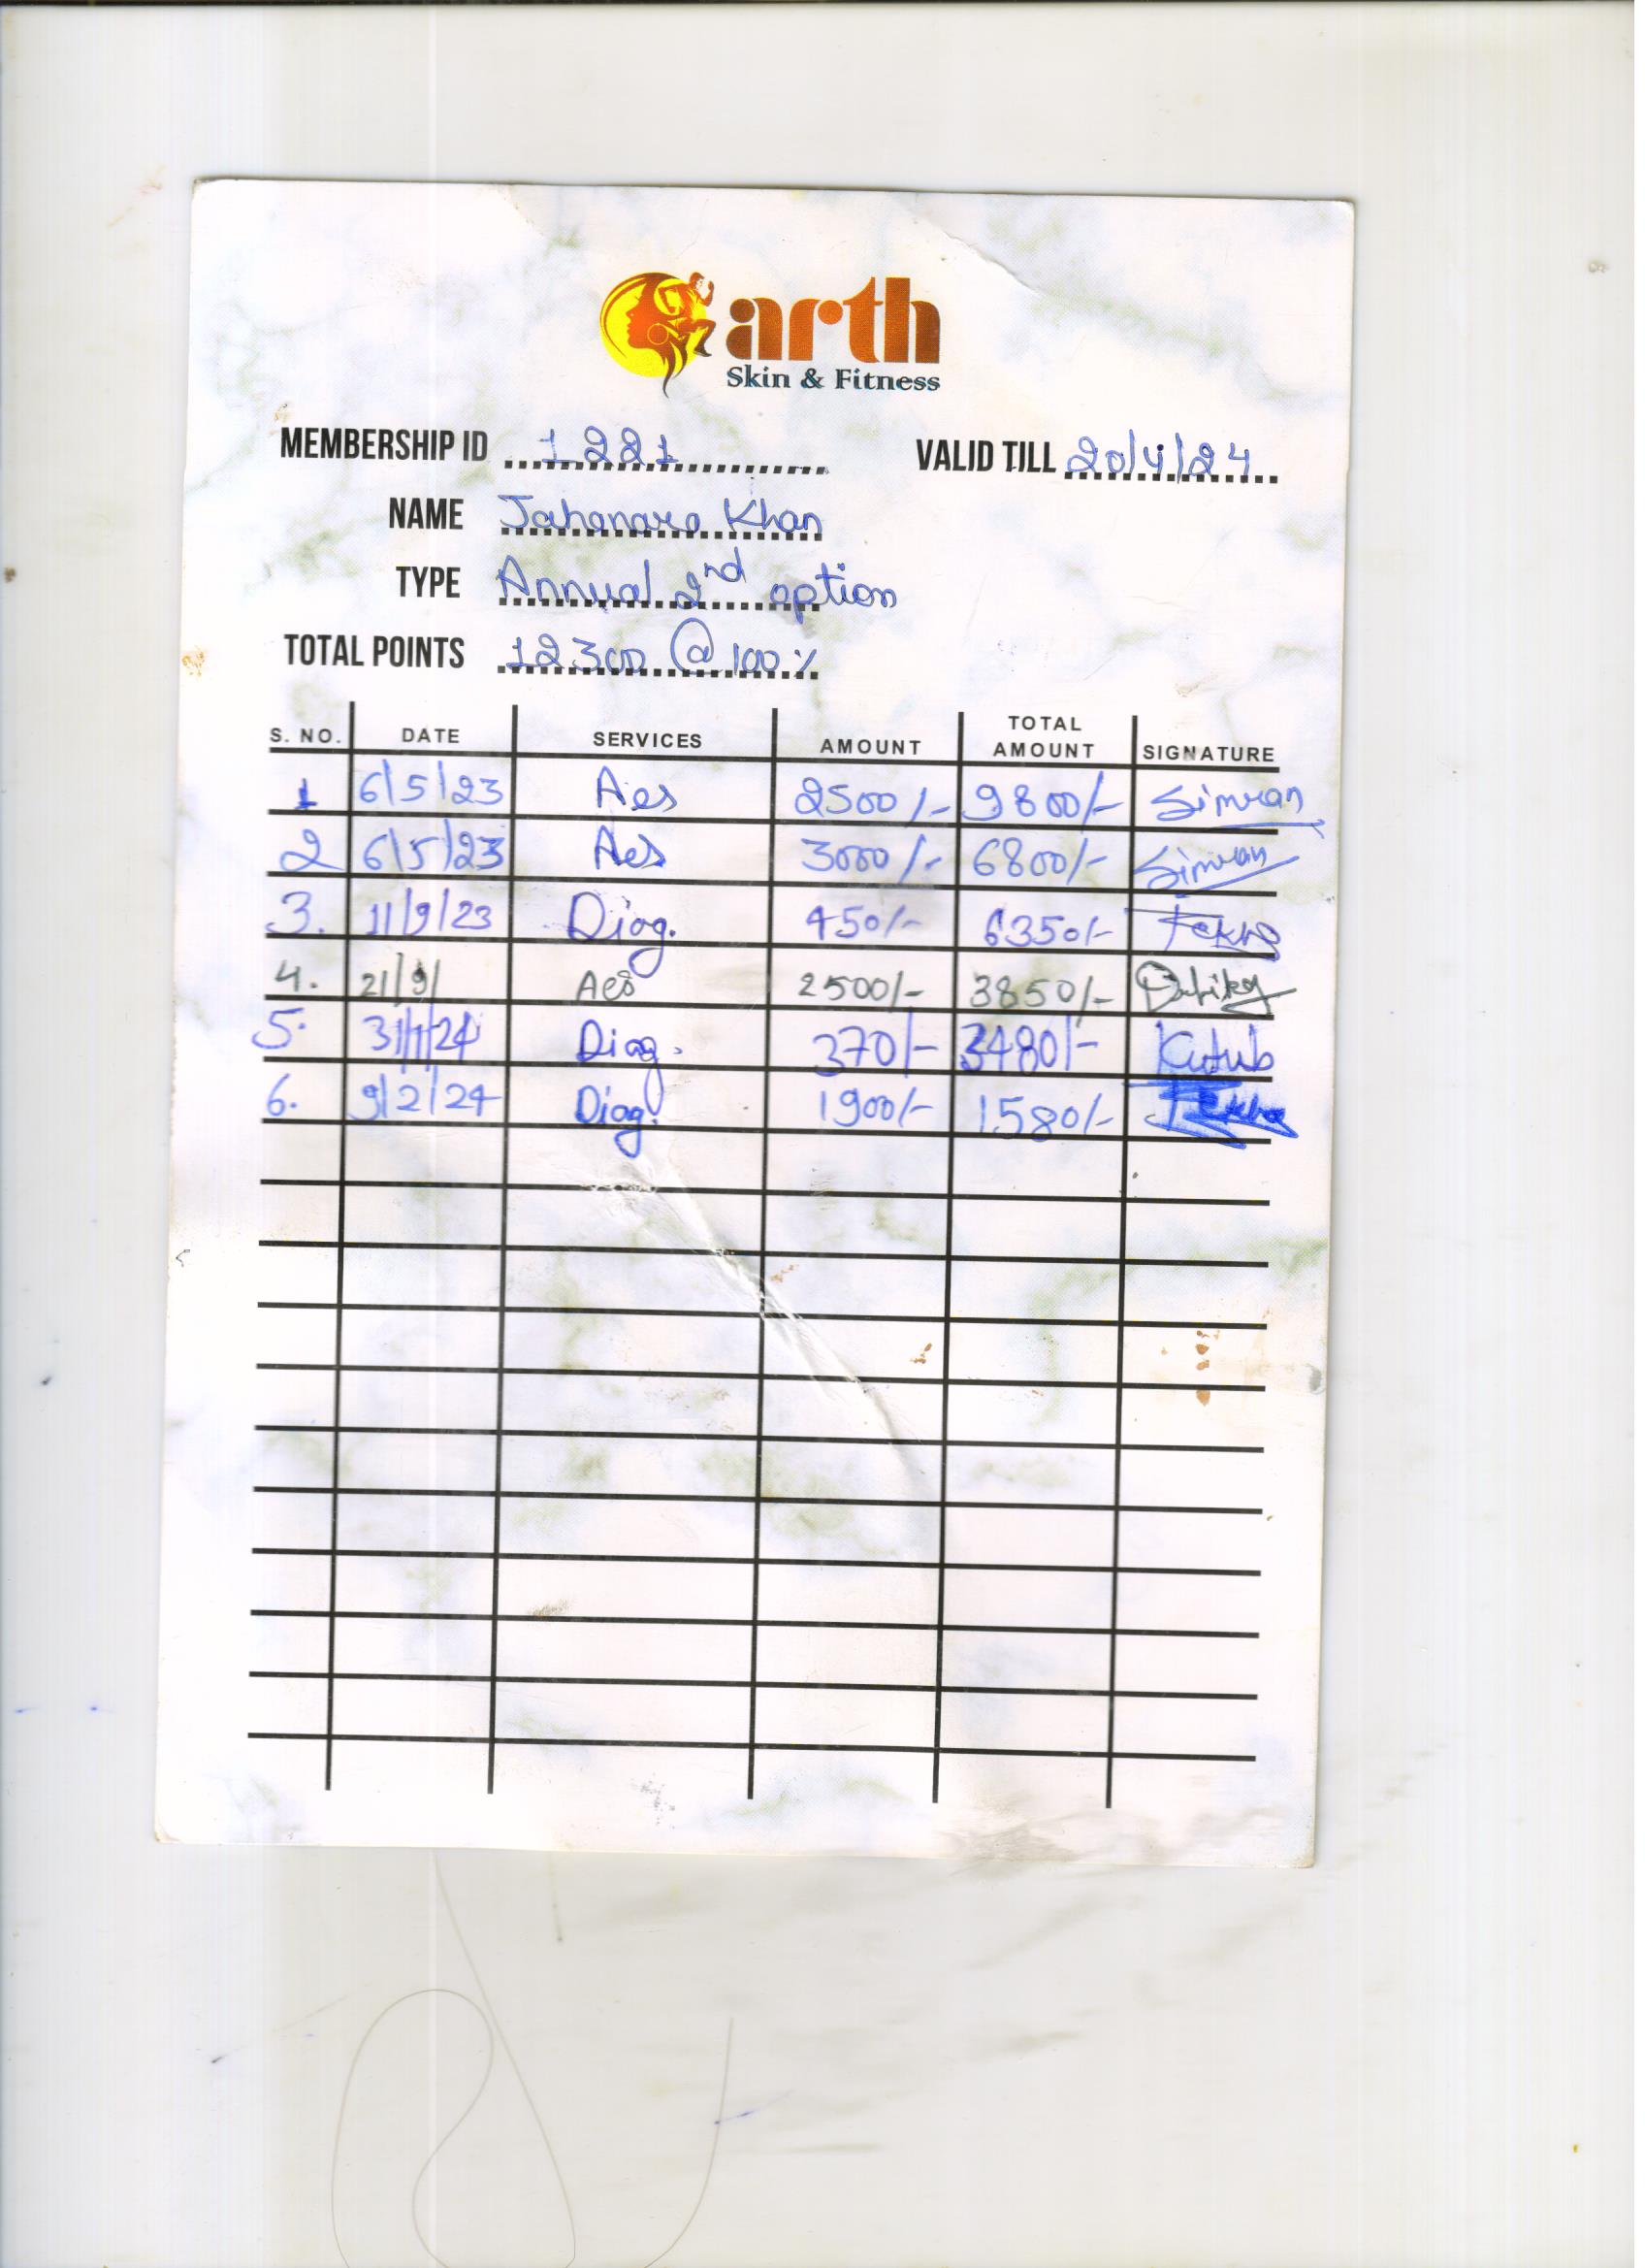 arth
Skin & Fitness
MEMBERSHIP ID 1221 VALID TILL 20/4/24
NAME Jahanara Khan
TYPE Annual 2nd option
TOTAL POINTS 12300 @ 100%
S. NO. DATE SERVICES AMOUNT TOTAL AMOUNT SIGNATURE
1 6/5/23 Aes 2500/- 9800/- Simran
2 6/5/23 Aes 3000/- 6800/- Simran
3. 11/9/23 Diag. 450/- 6350/-
4. 21/9/ Aes 2500/- 3850/-
5. 31/1/24 Diag. 370/- 3480/- Kutub
6. 9/2/24 Diag. 1900/- 1580/-